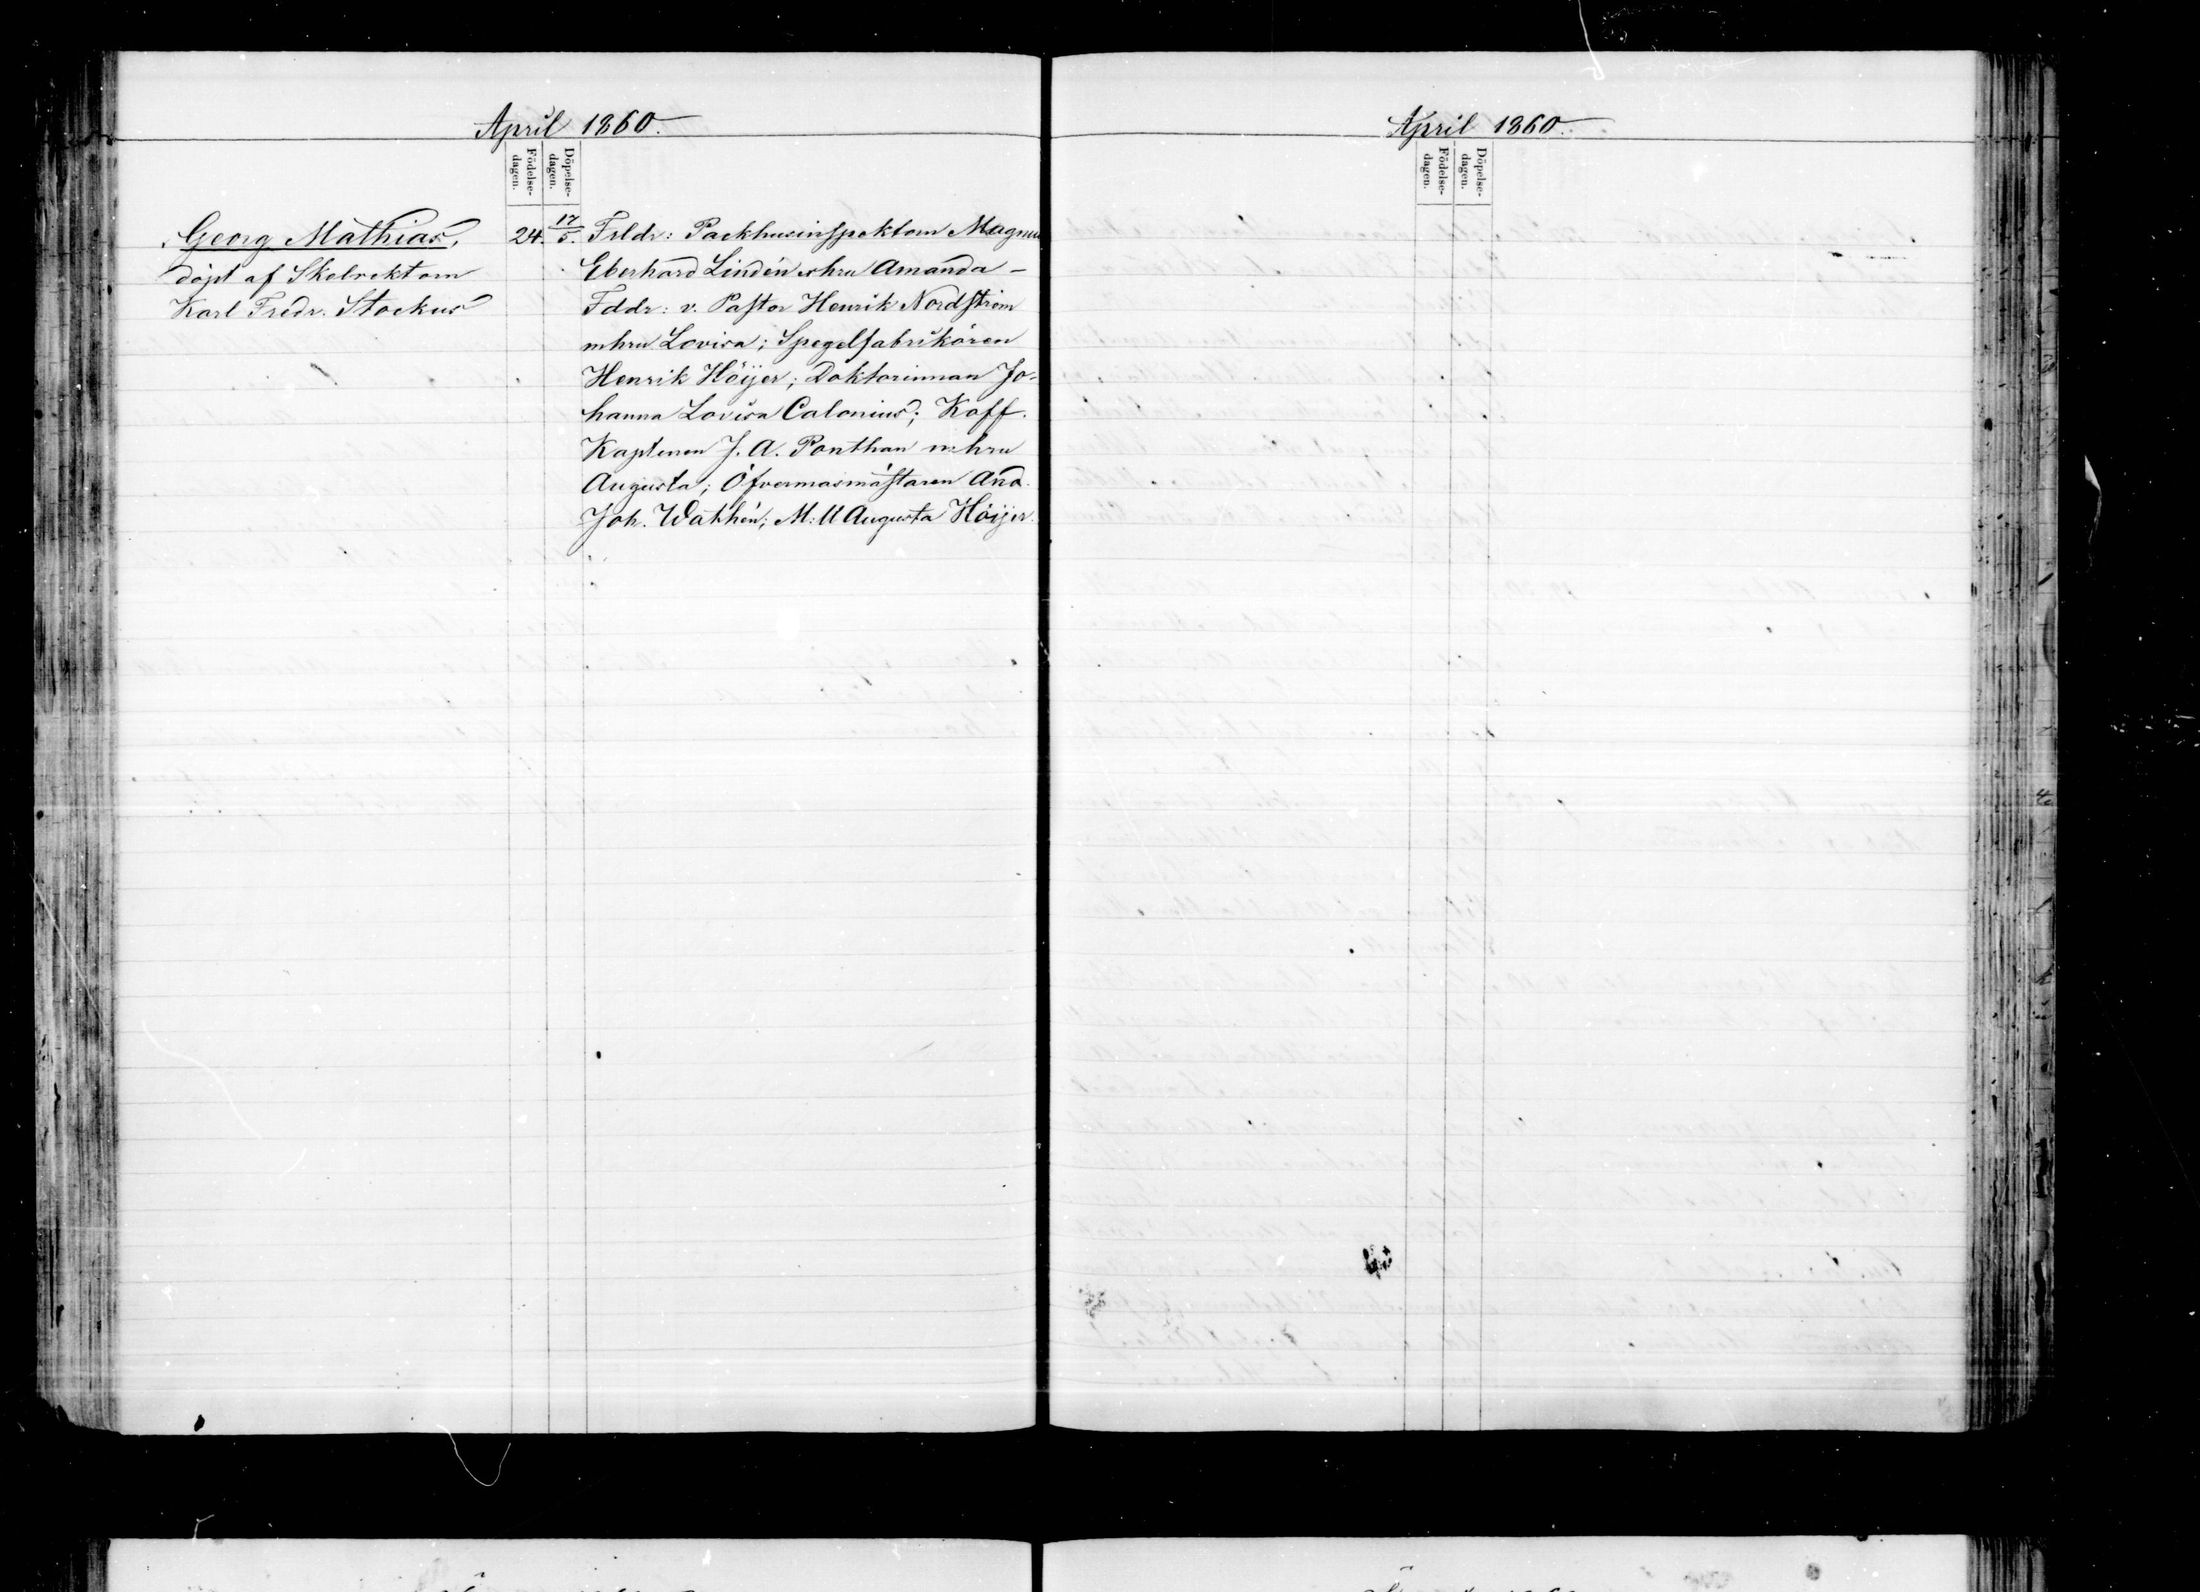 April 1860.
Födelse-
dagen.
Döpelse-
dagen.
Georg Mathias, 24. 17/5. Frldr: Packhusinspektorn Magnus
döpt af Skolrektorn Eberhard Lindén o hru Amanda –
Karl Fredr. Stockus Fddr: v. Pastor Henrik Nordström
mhru Lovisa; Spegelfabrikören
Henrik Höijer; Doktorinnan Jo-
hanna Lovisa Calonius; Koff.
Kaptenen J. A. Ponthan mhru
Augusta; Öfvermasmästaren And.
Joh. Wathén; M:ll Augusta Höijer.
April 1860.
Födelse-
dagen.
Döpelse-
dagen.